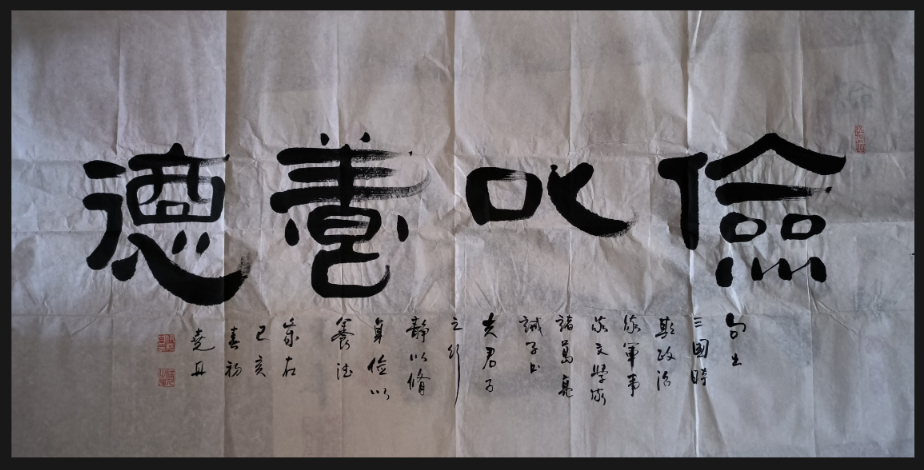 儉以養德
句出
三國時
期政治
家軍事
家文學家
諸葛亮
誡子书
夫君子
之行
靜以脩
身儉以
養德
己亥
春初